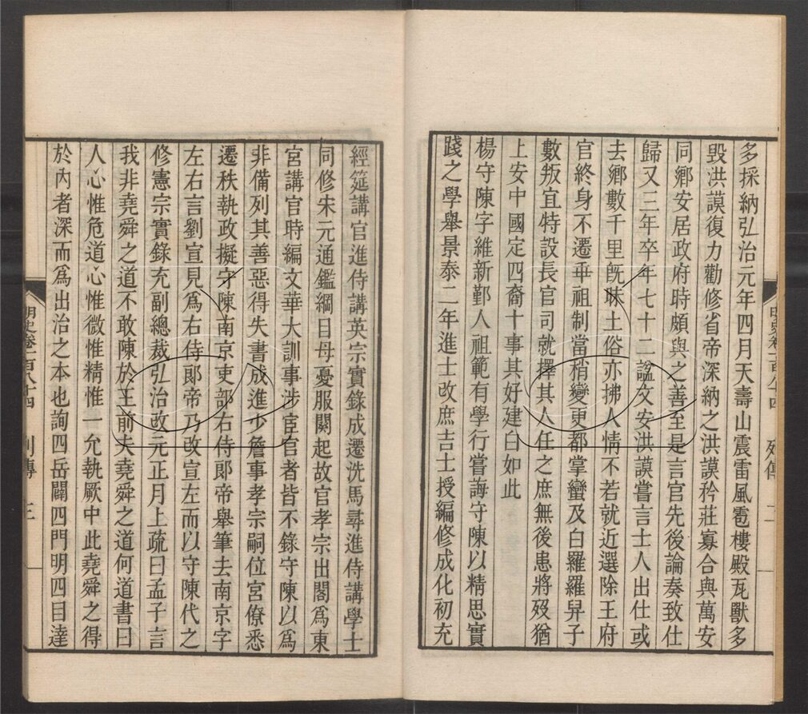 多採納弘治元年四月天壽山震雷風雹樓殿瓦獸多
毀洪謨復力勸修省帝深納之洪謨矜莊寡合與萬安
同鄉安居政府時頗與之善至是言官先後論奏致仕
歸又三年卒年七十二諡文安洪謨嘗言士人出仕或
去鄉數千里旣昧土俗亦拂人情不若就近選除王府
官終身不遷乖祖制當稍變更都掌蠻及白羅羅羿子
數叛宜特設長官司就擇其人任之庶無後患將歿猶
上安中國定四裔十事其好建白如此
楊守陳字維新鄞人祖範有學行嘗誨守陳以精思實
踐之學舉景泰二年進士改庶吉士授編修成化初充
經筵講官進侍講英宗實錄成遷洗馬尋進侍講學士
同修宋元通鑑綱目母憂服闋起故官孝宗出閣爲東
宮講官時編文華大訓事涉宦官者皆不錄守陳以爲
非備列其善惡得失書成進少詹事孝宗嗣位宮僚悉
遷秩執政擬守陳南京吏部右侍郞帝舉筆去南京字
左右言劉宣見爲右侍郞帝乃改宣左而以守陳代之
修憲宗實錄充副總裁弘治改元正月上疏曰孟子言
我非堯舜之道不敢陳於王前夫堯舜之道何道書曰
人心惟危道心惟微惟精惟一允執厥中此堯舜之得
於內者深而爲出治之本也詢四岳闢四門明四目達
明史卷一百八十四 列傳 三